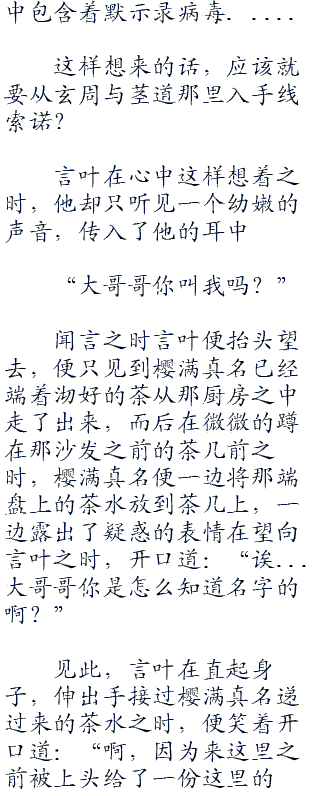 中包含着默示录病毒．．．．．
这样想来的话，应该就
要从玄周与茎道那里入手线
索诺？
言叶在心中这样想着之
时，他却只听见一个幼嫩的
声音，传入了他的耳中
“大哥哥你叫我吗？”
闻言之时言叶便抬头望
去，便只见到樱满真名已经
端着沏好的茶从那厨房之中
走了出来，而后在微微的蹲
在那沙发之前的茶几前之
时，樱满真名便一边将那端
盘上的茶水放到茶几上，一
边露出了疑惑的表情在望向
言叶之时，开口道：“诶...
大哥哥你是怎么知道名字的
啊？”
见此，言叶在直起身
子，伸出手接过樱满真名递
过来的茶水之时，便笑着开
口道：“啊，因为来这里之
前被上头给了一份这里的